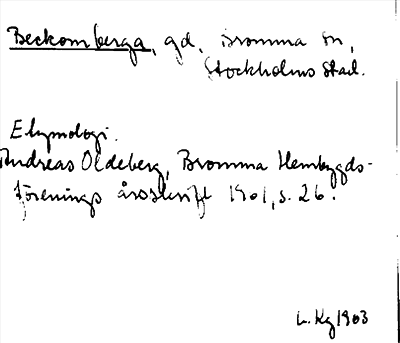 Beckomberga, gd, Bromma sn,
Stockholms stad.
Etymologi.
Andreas Oldeberg, Bromma Hembygds-
förenings årsskrift 1961, s. 26.
L. Kg 1963